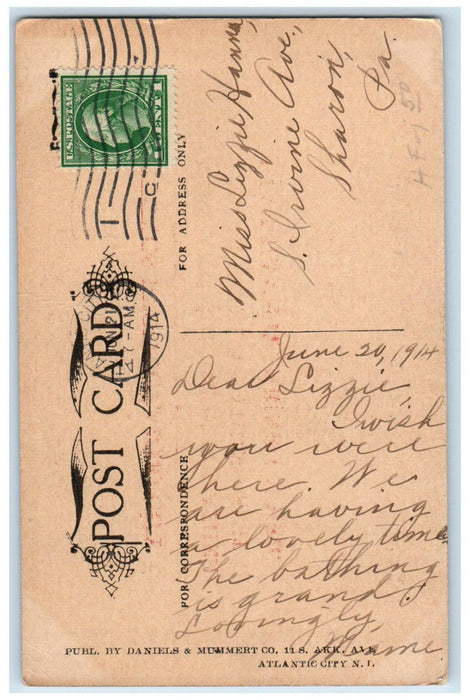 U.S. POSTAGE
1 CENT 1
JUN 21
7-AM
1914
POST CARD
FOR ADDRESS ONLY
Miss Lizzie Hanna,
S. Irvine Ave,
Sharon,
Pa.
FOR CORRESPONDENCE
June 20, 1914
Dear Lizzie,
I wish
you were
here. We
are having
a lovely time.
The bathing
is grand
Lovingly,
Mame
PUBL. BY DANIELS & MUMMERT CO. 11 S. ARK. AVE.
ATLANTIC CITY N.J.